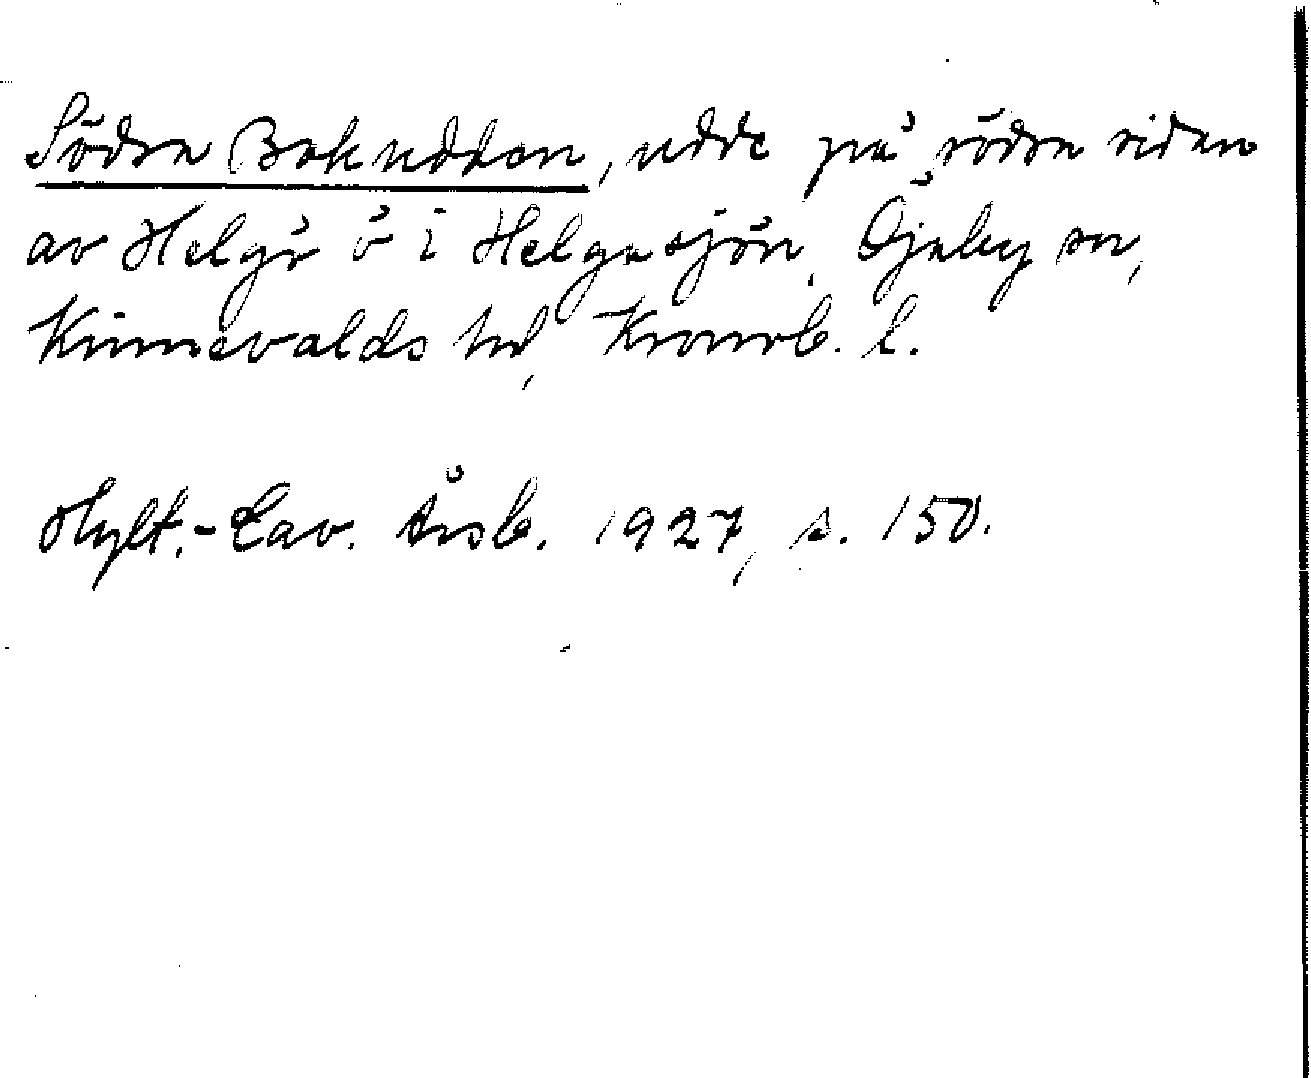 Södra Bokudden, udde på södra sidan
av Helgö ö i Helgasjön, Öjaby sn,
Kinnevalds hd, Kronob. l.
Hylt.-Cav. Årsb. 1927, s. 150.